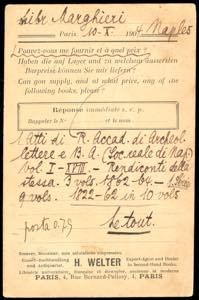 Libr. Marghieri
Paris, 10-X 1904 Naples
Pouvez-vous me fournir et à quel prix?
Haben Sie auf Lager und zu welchen äussersten
Barpreise können Sie mir liefern?
Can you supply, and at what price, any of the
following books, please?
Réponse immédiate s. v. p.
Rappeler le No et le Nom
1 Atti di R. Accad. di Archeol.
lettere e B. A. (Soc. reale di Nap)
vol. I - XVIII - Rendiconti della
stessa. 3 vols. 1862-64.
9 vols. 1822-62 in 10 vols
Le tout.
porto 0.75
H. WELTER
Export-Buchhandlung
und Antiquariat.
Export-Agent and Dealer
in Second-Hand Books.
Librairie universitaire, française et étrangère, ancienne et moderne
PARIS, 4, Rue Bernard-Palissy, 4, PARIS